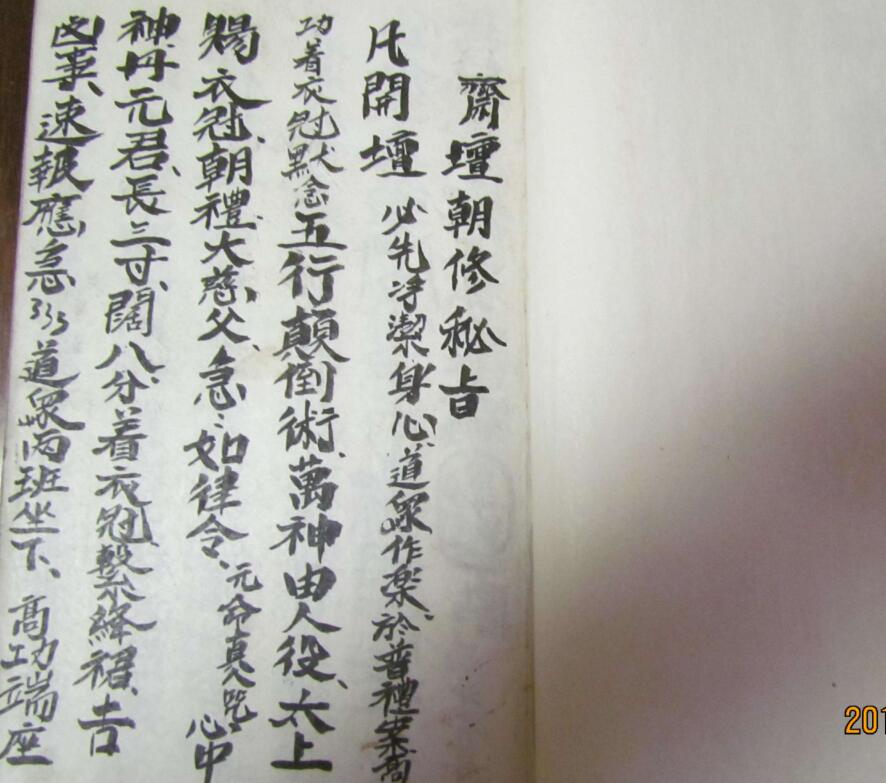 齋壇朝修秘旨
凡開壇必先淨潔身心道眾作樂於普禮業高
功着衣冠默念五行顛倒術萬神由人役太上
賜衣冠朝禮大慈父急〻如律令元命真人咒心中
神丹元君長三寸闊八分着衣冠繫絳裙吉
凶事速報應急〻〻道眾両班坐下高功端座
201